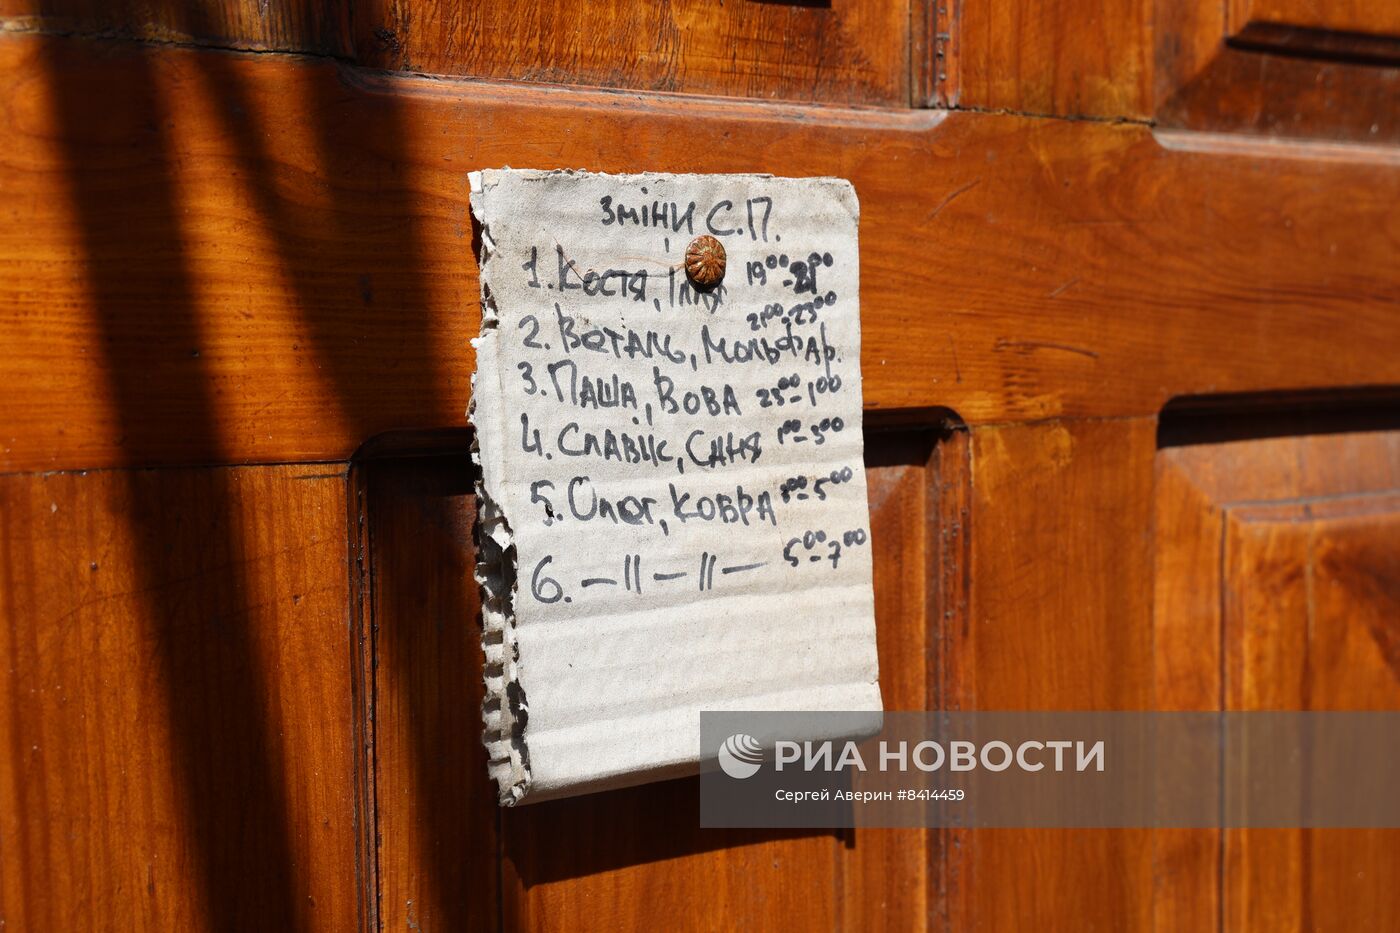 Зміни С.П.
1. Костя, Ілля 19⁰⁰-21⁰⁰
2. Веталь, Мольфар. 21⁰⁰-23⁰⁰
3. Паша, Вова 23⁰⁰-1⁰⁰
4. Славік, Саня 1⁰⁰-3⁰⁰
5. Олег, Ковра 3⁰⁰-5⁰⁰
6. –//–//– 5⁰⁰-7⁰⁰
РИА НОВОСТИ
Сергей Аверин #8414459